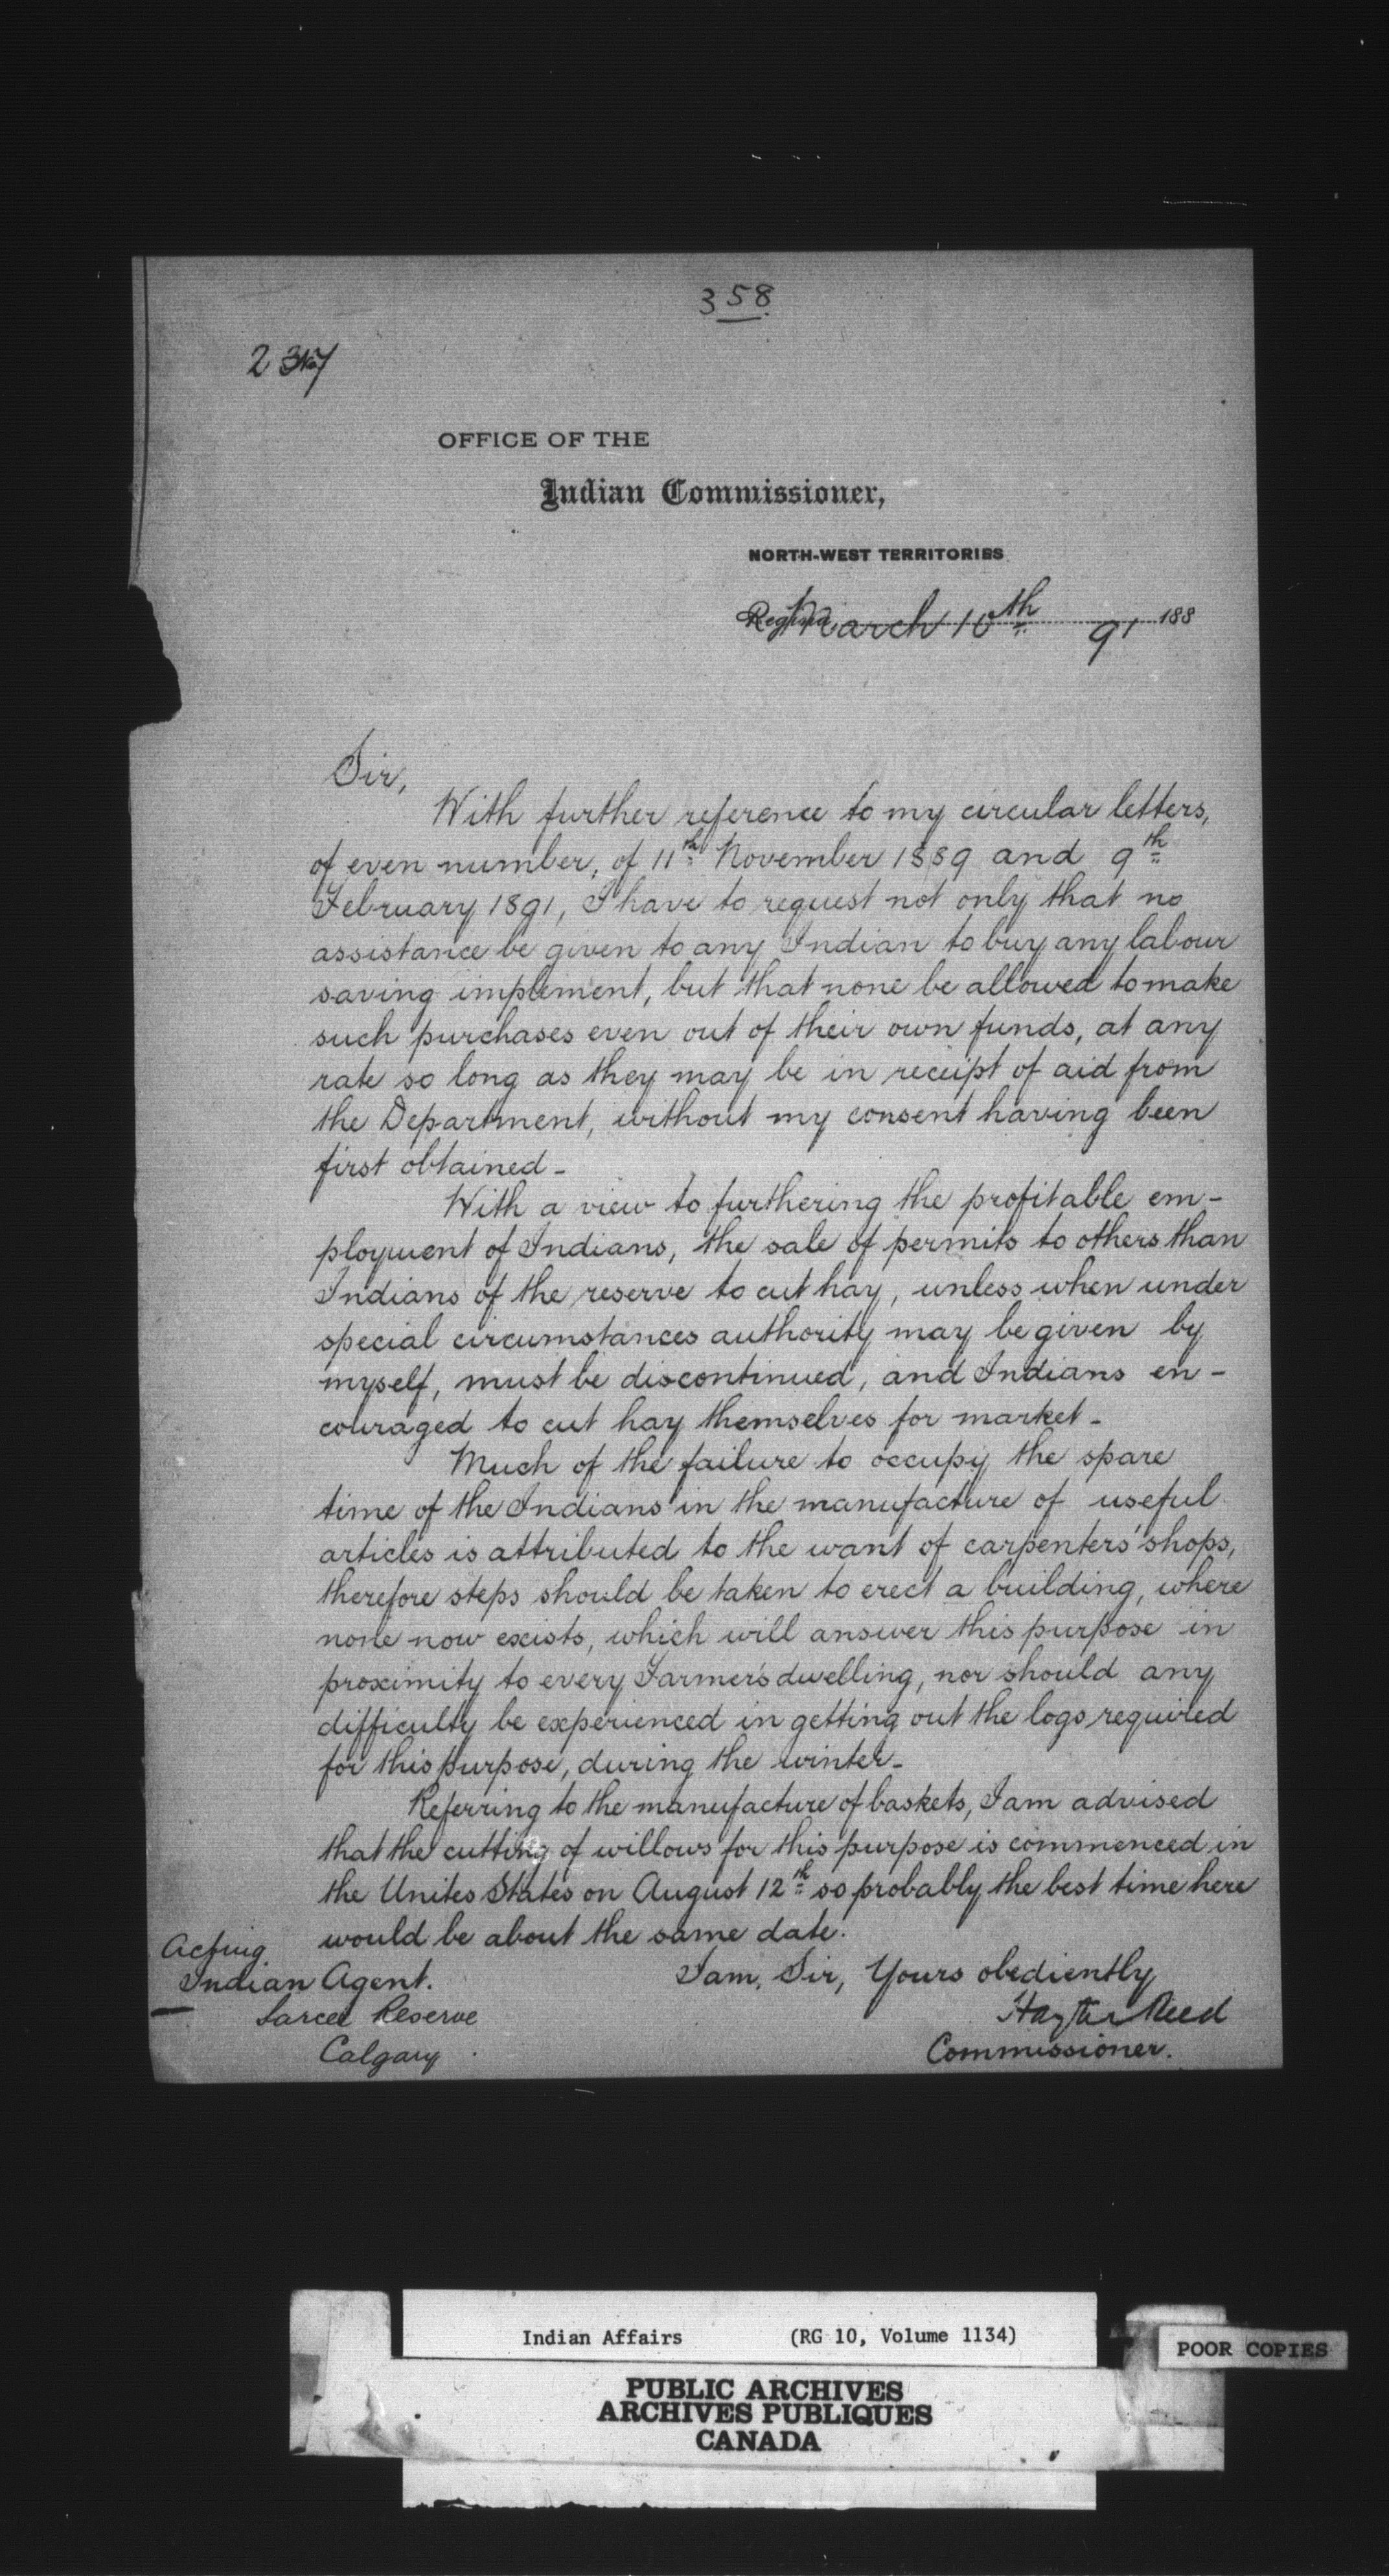 358
OFFICE OF THE
Indian Commissioner,
NORTH-WEST TERRITORIES
Regina March 10th 91 188
Sir,
With further reference to my circular letters,
of even number, of 11th November 1889 and 9th
February 1891, I have to request not only that no
assistance be given to any Indian to buy any labour
saving implement, but that none be allowed to make
such purchases even out of their own funds, at any
rate so long as they may be in receipt of aid from
the Department, without my consent having been
first obtained -
With a view to furthering the profitable em-
ployment of Indians, the sale of permits to others than
Indians of the reserve to cut hay, unless when under
special circumstances authority may be given by
myself, must be discontinued, and Indians en-
couraged to cut hay themselves for market -
Much of the failure to occupy the spare
time of the Indians in the manufacture of useful
articles is attributed to the want of carpenters' shops,
therefore steps should be taken to erect a building, where
none now exists, which will answer this purpose in
proximity to every Farmer's dwelling, nor should any
difficulty be experienced in getting out the logs required
for this purpose, during the winter -
Referring to the manufacture of baskets, I am advised
that the cutting of willows for this purpose is commenced in
the Unites States on August 12th so probably the best time here
would be about the same date.
I am, Sir, Yours obediently
Hayter Reed
Commissioner.
Acting
Indian Agent.
Sarcee Reserve
Calgary
Indian Affairs (RG 10, Volume 1134)
POOR COPIES
PUBLIC ARCHIVES
ARCHIVES PUBLIQUES
CANADA